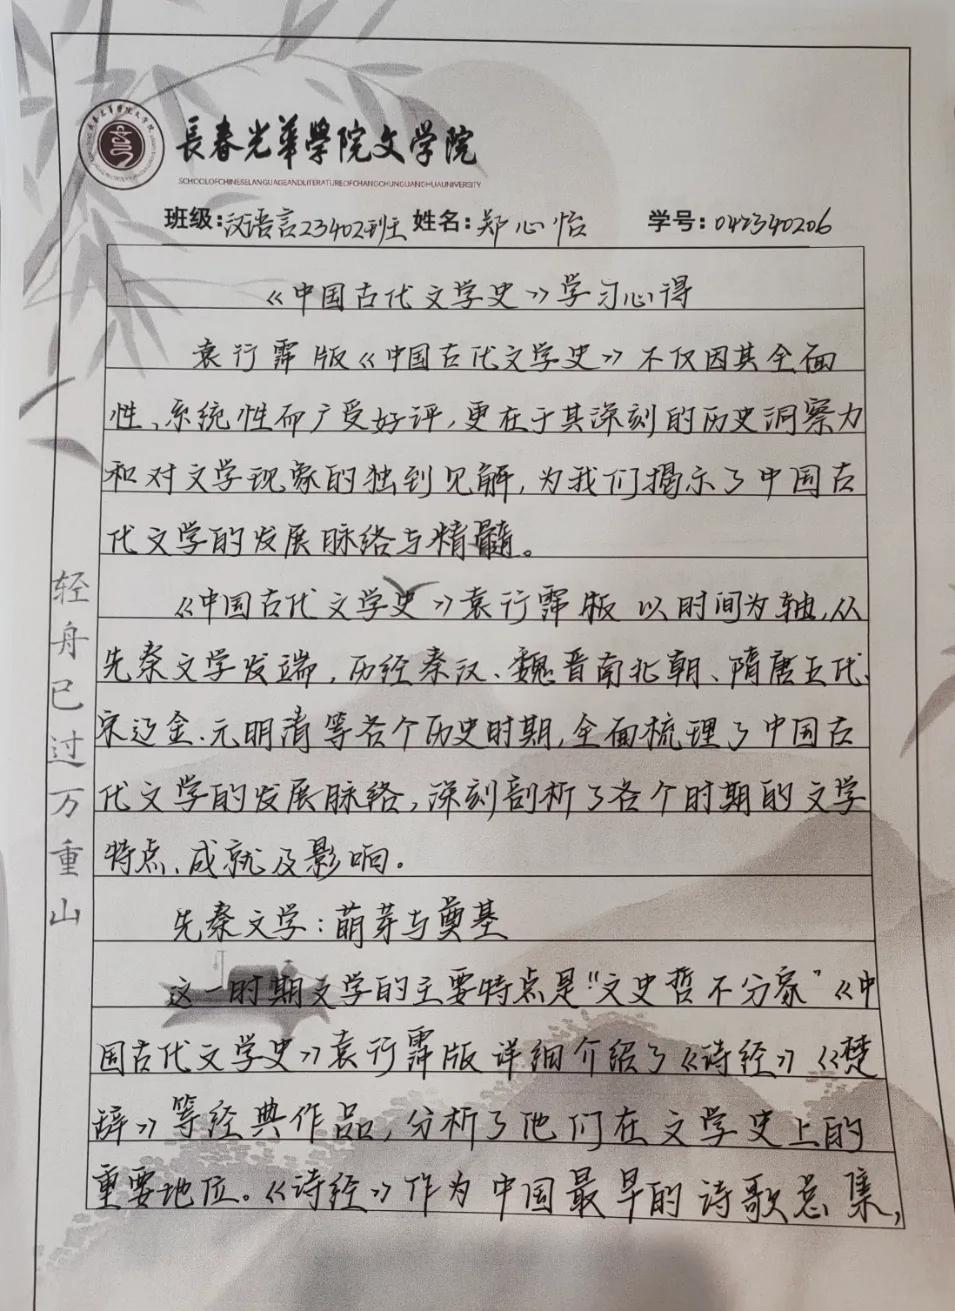 長春光華學院文学院
SCHOOLOFCHINESELANGUAGEANDLITERATUREOFCHANGCHUNGUANGHUAUNIVERSITY
班级:汉语言23402班 姓名:郑心怡 学号:042340206
《中国古代文学史》学习心得
袁行霈版《中国古代文学史》不仅因其全面
性、系统性而广受好评,更在于其深刻的历史洞察力
和对文学现象的独到见解,为我们揭示了中国古
代文学的发展脉络与精髓。
《中国古代文学史》袁行霈版以时间为轴,从
先秦文学发端,历经秦汉、魏晋南北朝、隋唐五代、
宋辽金、元明清等各个历史时期,全面梳理了中国古
代文学的发展脉络,深刻剖析了各个时期的文学
特点、成就及影响。
先秦文学:萌芽与奠基
这一时期文学的主要特点是“文史哲不分家”《中
国古代文学史》袁行霈版详细介绍了《诗经》《楚
辞》等经典作品,分析了他们在文学史上的
重要地位。《诗经》作为中国最早的诗歌总集,
轻舟已过万重山